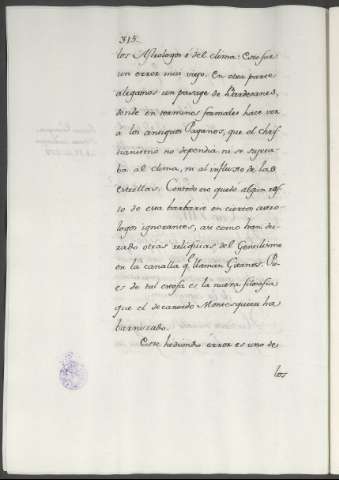 315.
los Astrologos ó del clima: Este fue
un error mui viejo. En otra parte
alegamos un pasage de Bardesanes,
donde en terminos formales hace ver
a los antiguos Paganos, que el chris-
tianismo no dependia, ni se sujeta-
ba al clima, ni al influxo de las
estrellas. Contodo eso quedo algun res-
to de esta barbarie en ciertos astro-
logos ignorantes, asi como han de-
xado otras reliquias del Gentilismo
en la canalla q.e llaman Gitanos. Pu-
es de tal estofa es la nueva filosofia
que el decantado Montesquieu ha
barnizado.
Este hediondo error es uno de
los